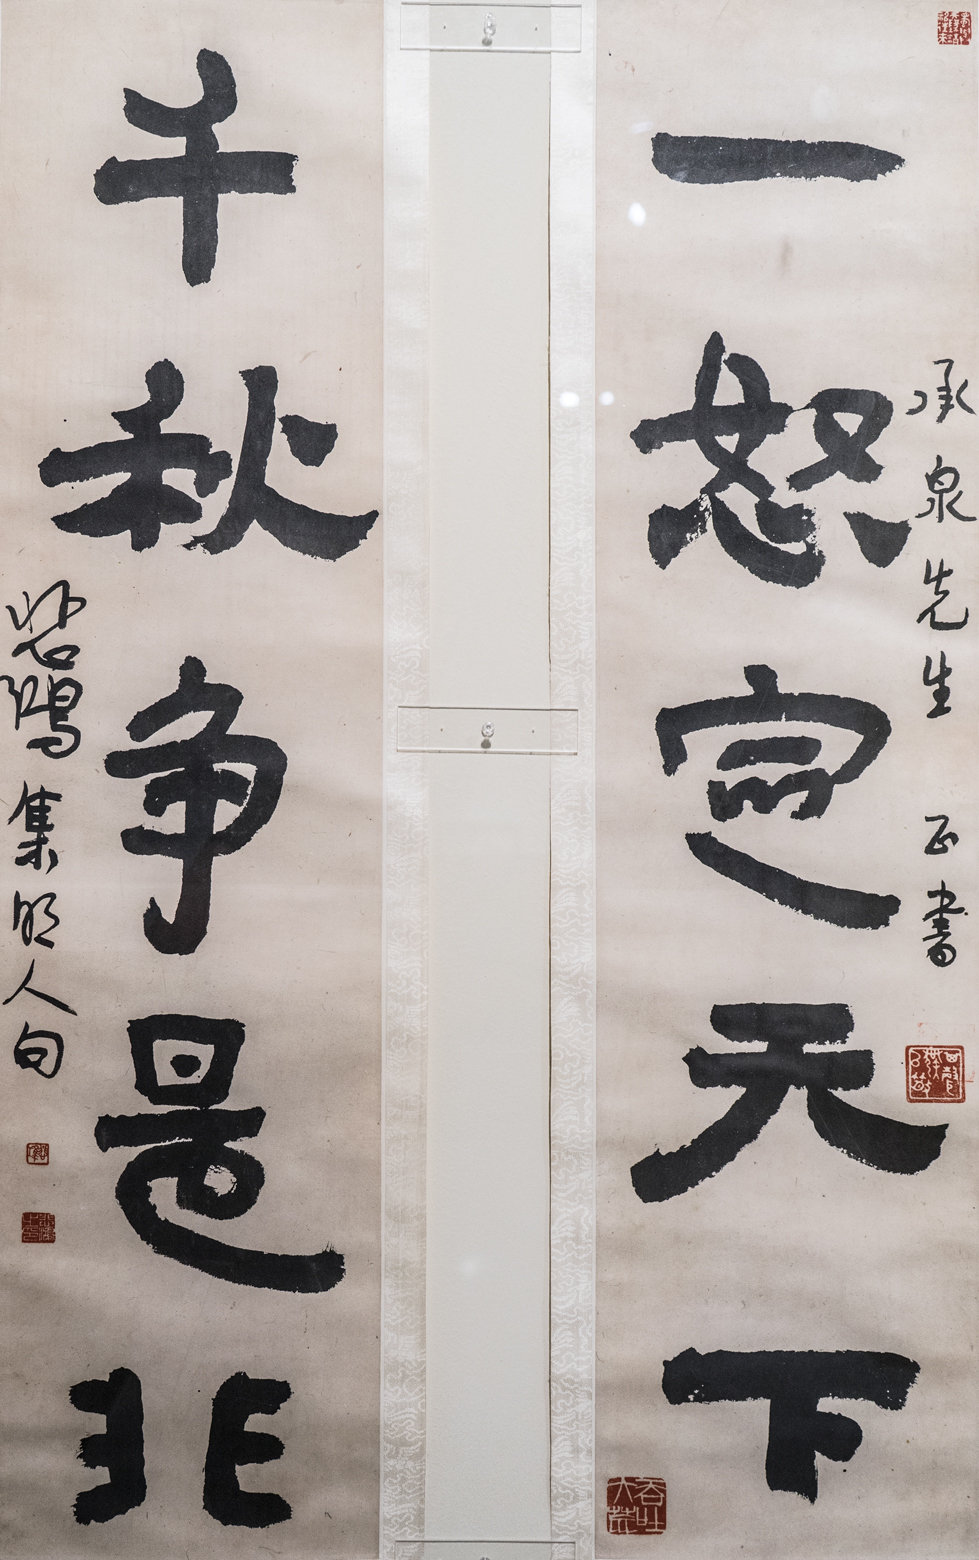 承泉先生 正書
一怒定天下
千秋争是非
悲鴻 集明人句
吞吐大荒